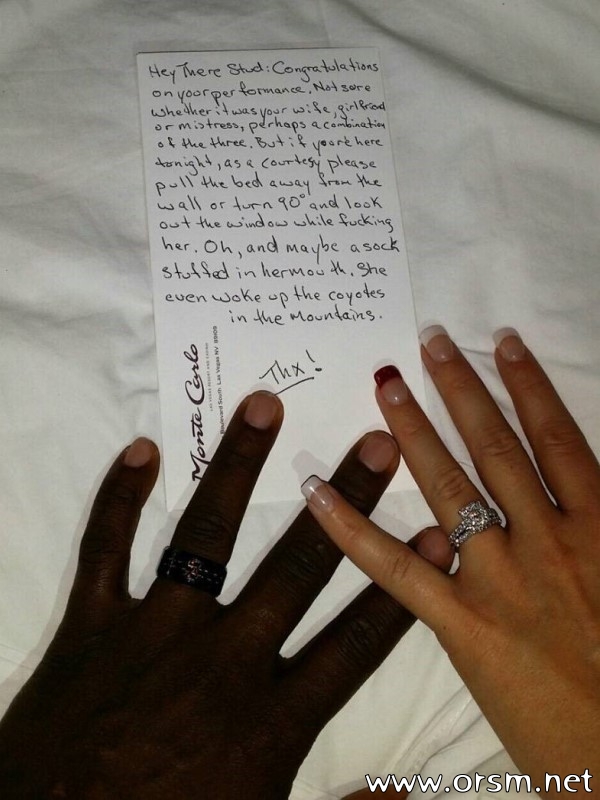 Hey There Stud: Congratulations
on your performance. Not sure
whether it was your wife, girlfriend
or mistress, perhaps a combination
of the three. But if you're here
tonight, as a courtesy please
pull the bed away from the
wall or turn 90° and look
out the window while fucking
her. Oh, and maybe a sock
stuffed in her mouth. She
even woke up the coyotes
in the Mountains.
Thx!
Monte Carlo
LAS VEGAS RESORT AND CASINO
Boulevard South Las Vegas NV 89109
www.orsm.net